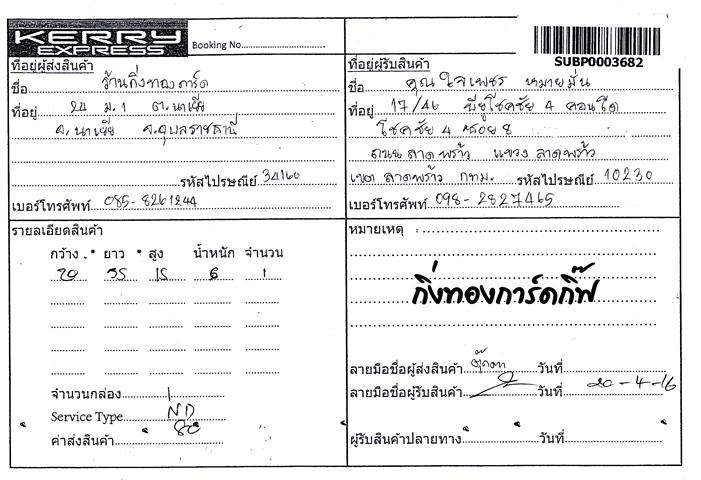 KERRY
EXPRESS
Booking No.
SUBP0003682
ที่อยู่ผู้ส่งสินค้า
ชื่อ ร้านกิ่งทองการ์ด
ที่อยู่ 24 ม.1 ต.นาเยีย
อ.นาเยีย จ.อุบลราชธานี
รหัสไปรษณีย์ 34160
เบอร์โทรศัพท์ 085-8261244
ที่อยู่ผู้รับสินค้า
ชื่อ คุณ ใจเพชร หมายมั่น
ที่อยู่ 17/46 บียูโชคชัย 4 คอนโด
โชคชัย 4 ซอย 8
ถนน ลาดพร้าว แขวง ลาดพร้าว
เขต ลาดพร้าว กทม. รหัสไปรษณีย์ 10230
เบอร์โทรศัพท์ 098-2827465
รายละเอียดสินค้า
กว้าง * ยาว * สูง น้ำหนัก จำนวน
20 35 15 6 1
จำนวนกล่อง 1
Service Type ND
ค่าส่งสินค้า 80
หมายเหตุ :
กิ่งทองการ์ดกิ๊ฟ
ลายมือชื่อผู้ส่งสินค้า วันที่
ลายมือชื่อผู้รับสินค้า วันที่ 20-4-16
ผู้รับสินค้าปลายทาง วันที่